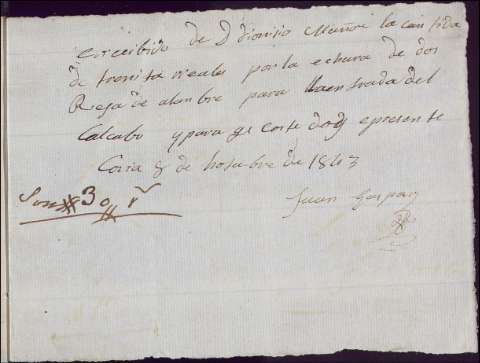 e recibido de D dionisio Muñoz la cantida
de treinta reales por la echura de dos
Rejas de alanbre para la enstrada del
Calcabo y para qe coste doy e presente
Coria 8 de hotubre de 1843
Son # 30 # r
Juan Gaspar